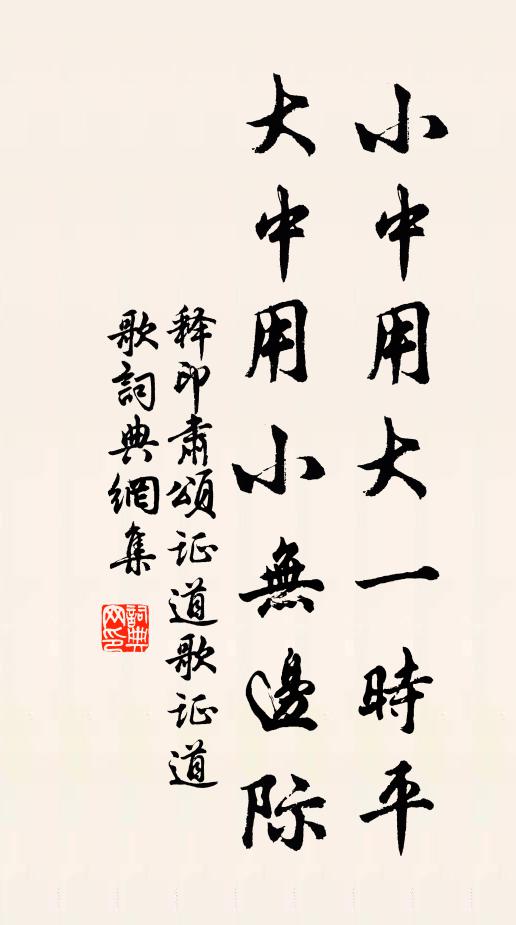 小中用大一時平
大中用小無邊际
释印肃頌证道歌证道
歌詞典網集
詞典
网印